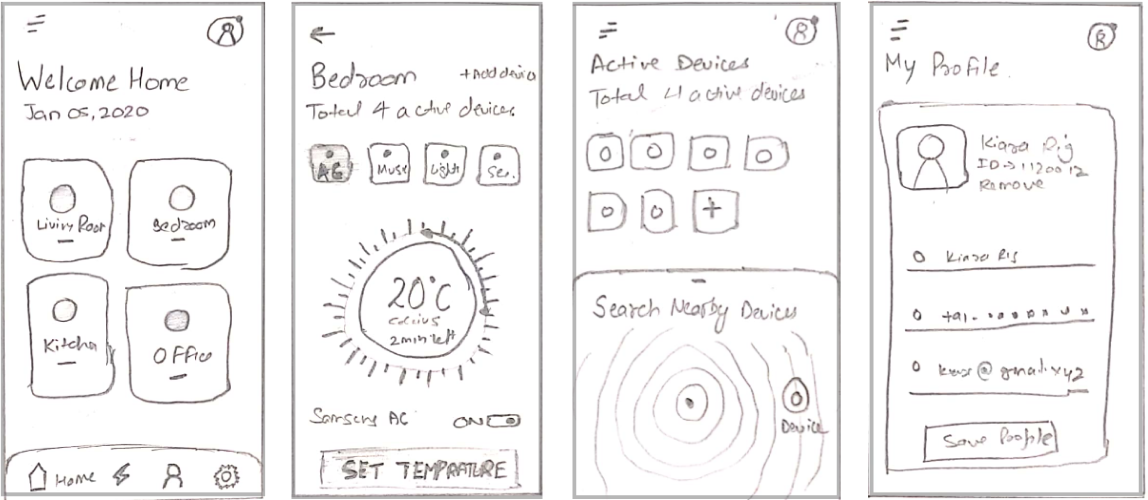 Welcome Home
Jan 05, 2020
Living Room
Bedroom
Kitchen
Office
Home
Bedroom
+Add device
Total 4 active devices
AC
Music
Light
Sec.
20°C
celcius
2 min left
Samsung AC
ON
SET TEMPRATURE
Active Devices
Total 4 active devices
+
Search Nearby Devices
Device
My Profile
Remove
@gmail.xyz
Save Profile